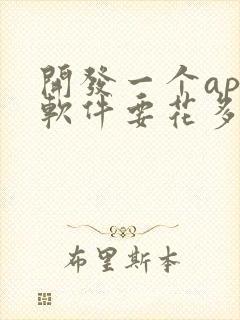 開發一个ap
軟件要花多
布里斯本